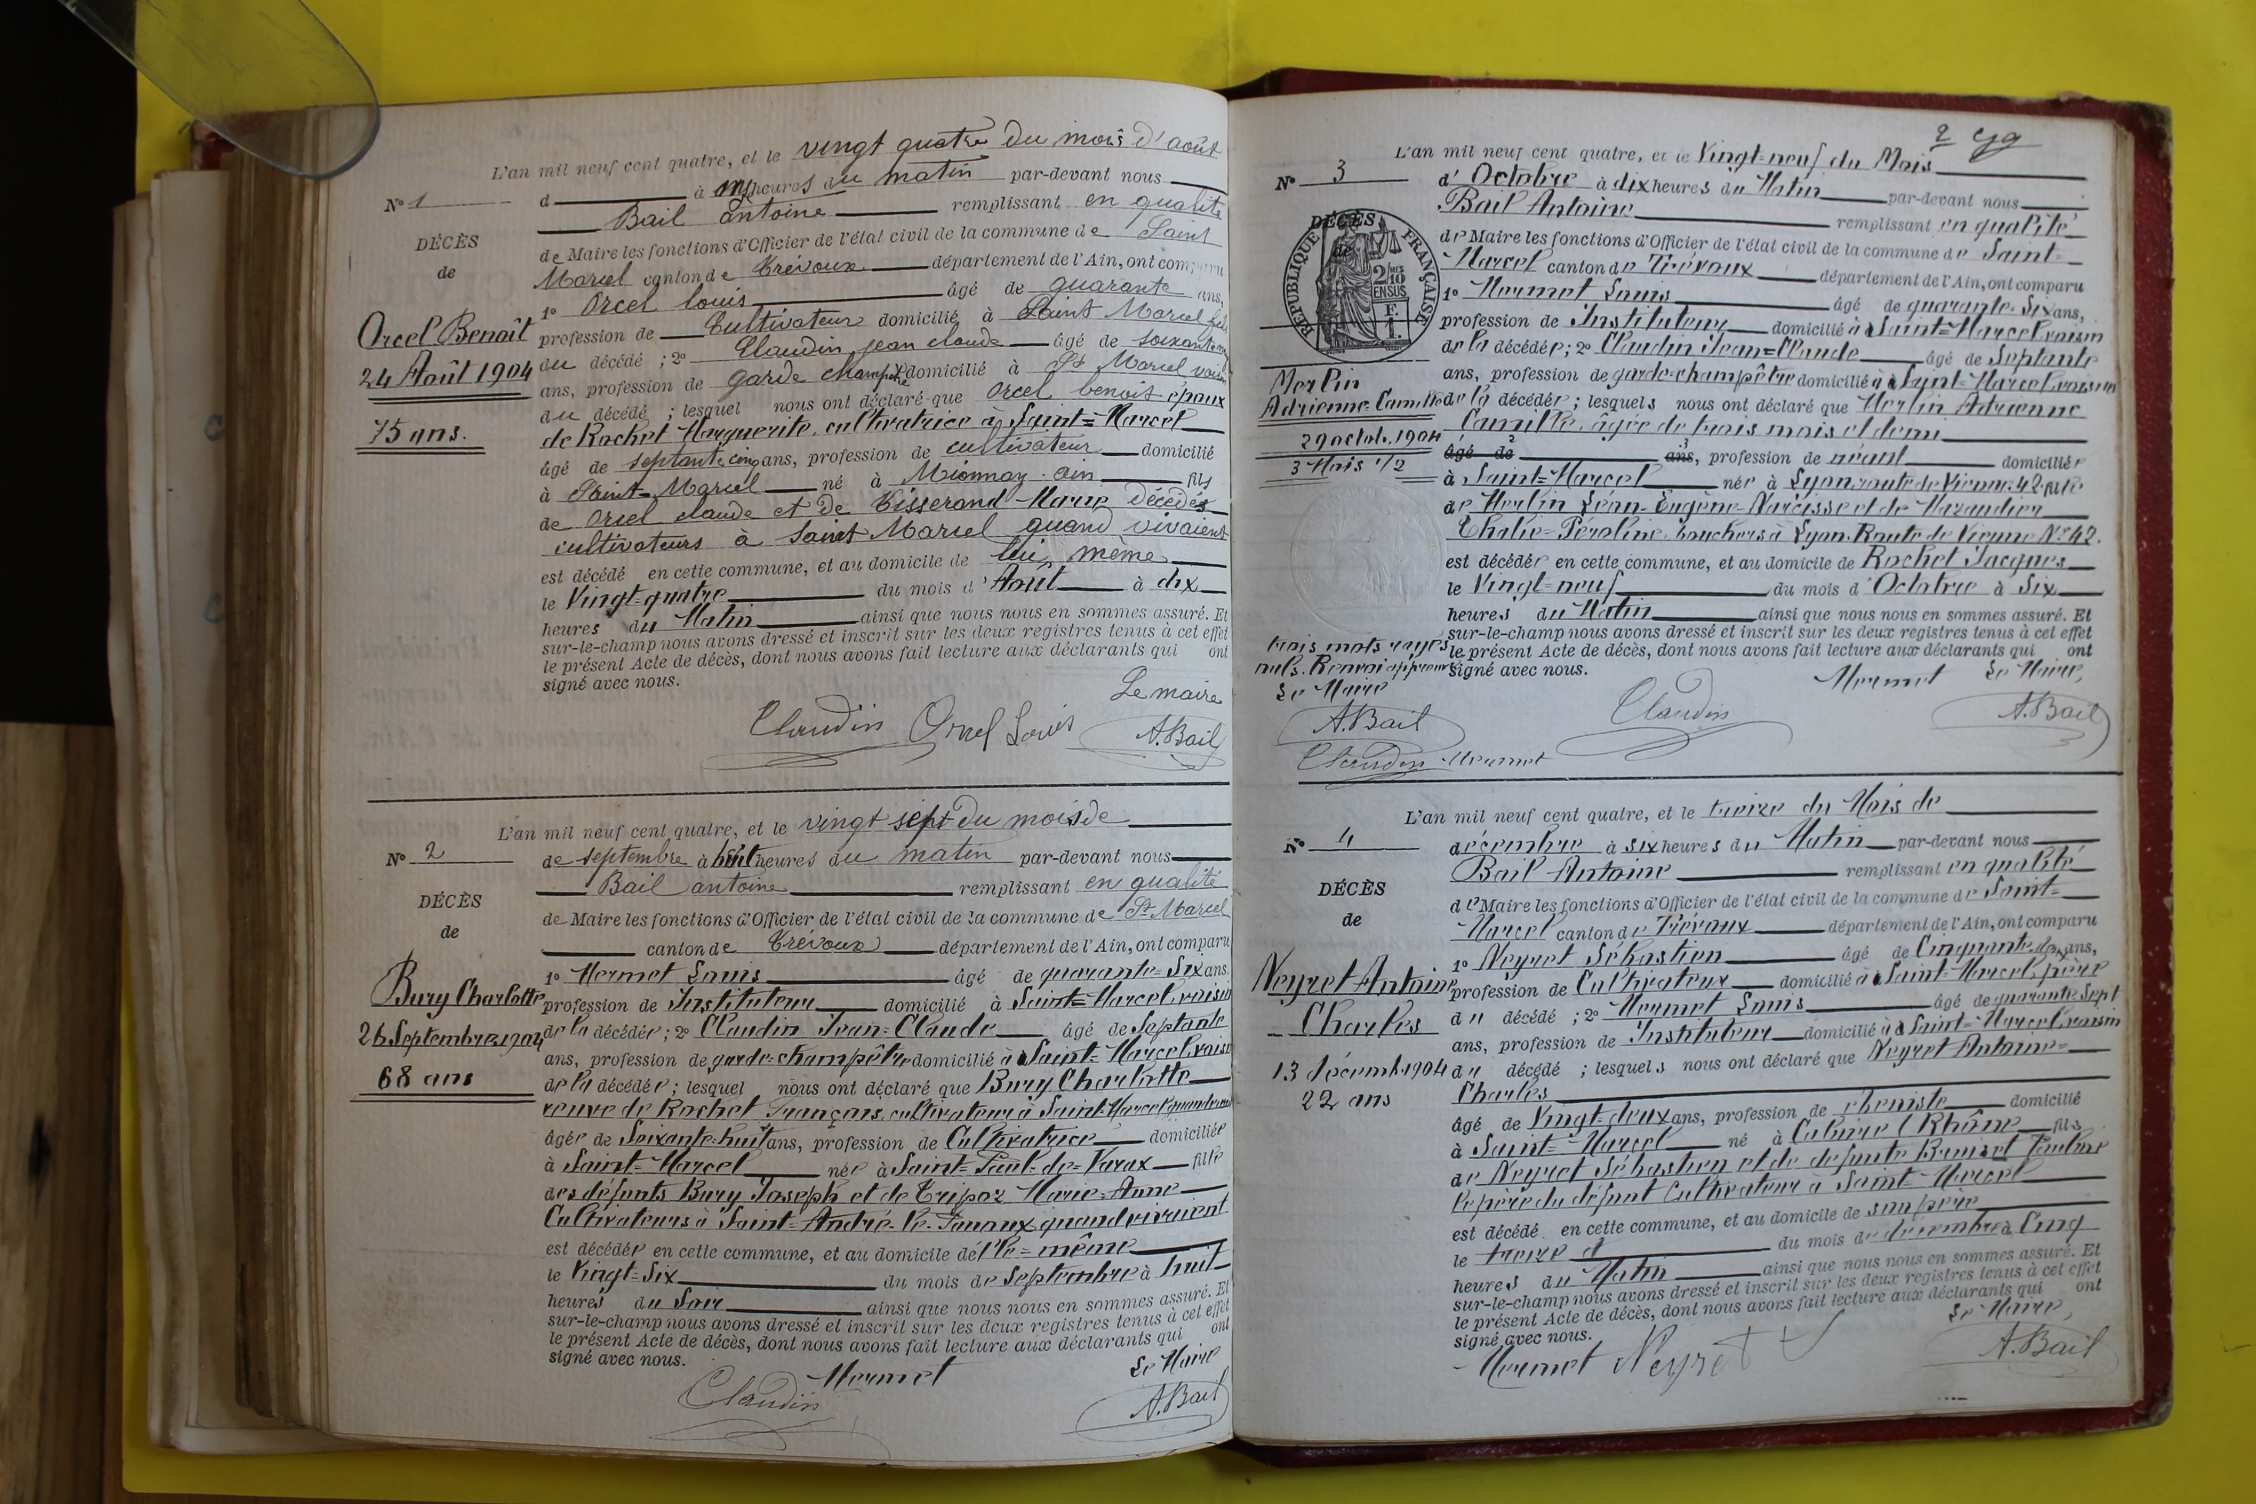 L'an mil neuf cent quatre, et le vingt quatre du mois d'août
No 1
d à onze heures du matin par-devant nous
Bail antoine remplissant en qualité
DÉCÈS
de Maire les fonctions d'Officier de l'état civil de la commune de Saint
de
Marcel canton de Trévoux département de l'Ain, ont comparu
1o Orcel louis âgé de quarante ans,
Orcel Benoît
profession de Cultivateur domicilié à Saint Marcel fils
24 Août 1904
du décédé ; 2o Claudin jean claude âgé de soixante
ans, profession de garde champêtre domicilié à St Marcel voisin
75 ans.
du décédé ; lesquel nous ont déclaré que Orcel benoit époux
de Rochet Marguerite, cultivatrice à Saint=Marcel
âgé de septante cinq ans, profession de cultivateur domicilié
à Saint=Marcel né à Mionnay - ain fils
de Orcel claude et de Tisserand Marie décédés
cultivateurs à Saint Marcel quand vivaient
est décédé en cette commune, et au domicile de lui même
le Vingt=quatre du mois d'Août à dix
heures du Matin ainsi que nous nous en sommes assuré. Et
sur-le-champ nous avons dressé et inscrit sur les deux registres tenus à cet effet
le présent Acte de décès, dont nous avons fait lecture aux déclarants qui ont
signé avec nous.
Le maire
Claudin Orcel Louis A. Bail
L'an mil neuf cent quatre, et le vingt sept du mois de
No 2
de septembre à huit heures du matin par-devant nous
Bail antoine remplissant en qualité
DÉCÈS
de Maire les fonctions d'Officier de l'état civil de la commune de St Marcel
de
canton de Trévoux département de l'Ain, ont comparu
1o Mermet Louis âgé de quarante=six ans,
Bury Charlotte
profession de Instituteur domicilié à Saint=Marcel voisin
26 Septembre 1904
de la décédée ; 2o Claudin Jean=Claude âgé de Septante
ans, profession de garde=champêtre domicilié à Saint=Marcel voisin
68 ans
de la décédée ; lesquel nous ont déclaré que Bury Charlotte
veuve de Rochet François, cultivateur à Saint=Marcel quand vivait
âgée de Soixante=huit ans, profession de Cultivatrice domiciliée
à Saint=Marcel née à Saint=Paul=de=Varax fille
des défunts Bury Joseph et de Tripoz Marie=Anne
Cultivateurs à Saint=André-le-Panoux quand vivaient
est décédée en cette commune, et au domicile d'elle=même
le Vingt=Six du mois de septembre à huit
heures du Soir ainsi que nous nous en sommes assuré. Et
sur-le-champ nous avons dressé et inscrit sur les deux registres tenus à cet effet
le présent Acte de décès, dont nous avons fait lecture aux déclarants qui ont
signé avec nous.
Le Maire
Mermet
Claudin A. Bail
2
L'an mil neuf cent quatre, et le Vingt=neuf du Mois
No 3
d'Octobre à dix heures du Matin par-devant nous
Bail Antoine remplissant en qualité
DÉCÈS
de
RÉPUBLIQUE FRANÇAISE
2/10 EN SUS
F. 1.
de Maire les fonctions d'Officier de l'état civil de la commune de Saint=
Marcel canton de Trévoux département de l'Ain, ont comparu
1o Mermet Louis âgé de quarante-six ans,
profession de Instituteur domicilié à Saint=Marcel voisin
de la décédée ; 2o Claudin Jean=Claude âgé de Septante
Merlin
ans, profession de garde-champêtre domicilié à Saint=Marcel voisin
Adrienne=Camille
de la décédée ; lesquels nous ont déclaré que Merlin Adrienne
Camille, âgée de trois mois et demi
29 octob. 1904
âgé de ans, profession de néant domiciliée
3 Mois 1/2
à Saint=Marcel née à Lyon route de Vienne 42 fille
de Merlin Léon-Eugène-Narcisse et de Marandier
Thalie=Péroline, bouchers à Lyon, Route de Vienne No 42.
est décédée en cette commune, et au domicile de Rochet Jacques
le Vingt=neuf du mois d'Octobre à Six
heures du Matin ainsi que nous nous en sommes assuré. Et
sur-le-champ nous avons dressé et inscrit sur les deux registres tenus à cet effet
le présent Acte de décès, dont nous avons fait lecture aux déclarants qui ont
signé avec nous.
trois mots rayés
nuls. Renvoi approuvé
Le Maire
A. Bail
Claudin Mermet
Mermet Le Maire,
Claudin A. Bail
L'an mil neuf cent quatre, et le treize du Mois de
No 4
décembre à six heures du Matin par-devant nous
Bail Antoine remplissant en qualité
DÉCÈS
de Maire les fonctions d'Officier de l'état civil de la commune de Saint=
de
Marcel canton de Trévoux département de l'Ain, ont comparu
1o Neyret Sébastien âgé de Cinquante deux ans,
Neyret Antoine
profession de Cultivateur domicilié à Saint-Marcel, père
Charles
du décédé ; 2o Mermet Louis âgé de quarante sept
ans, profession de Instituteur domicilié à Saint=Marcel voisin
13 décemb. 1904
du décédé ; lesquels nous ont déclaré que Neyret Antoine=
22 ans
Charles
âgé de Vingt=deux ans, profession de ébéniste domicilié
à Saint=Marcel né à Caluire (Rhône fils
de Neyret Sébastien et de défunte Pauline
le père du défunt Cultivateur à Saint=Marcel
est décédé en cette commune, et au domicile de son père
le treize d du mois de décembre à Cinq
heures du Matin ainsi que nous nous en sommes assuré. Et
sur-le-champ nous avons dressé et inscrit sur les deux registres tenus à cet effet
le présent Acte de décès, dont nous avons fait lecture aux déclarants qui ont
signé avec nous.
Le Maire,
Mermet Neyret A. Bail